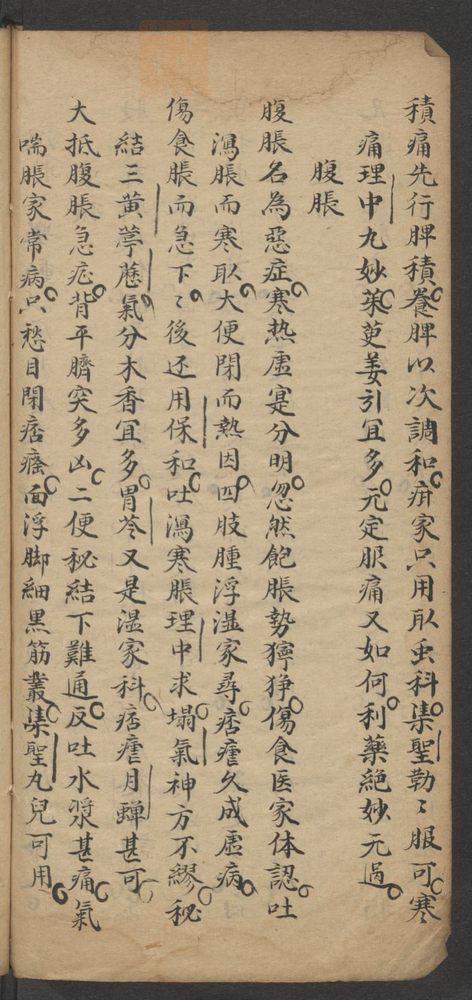 積痛先行脾積養脾以次調和疳家只用取虫科集聖勒〻服可寒
痛理中九妙茱萸姜引宜多元定服痛又如何利藥絕妙元過
腹脹
腹脹名為惡症寒热虛寔分明忽然飽脹勢獰狰傷食医家体認吐
瀉脹而寒取大便閉而熱因四肢腫浮濕家尋痞瘧久成虛病
傷食脹而急下〻後还用保和吐瀉寒脹理中求塌氣神方不繆秘
結三黃葶藶氣分木香宜多胃苓又是湿家科痞瘧月蟬甚可
大抵腹脹急症背平臍突多凶二便秘結下難通反吐水漿甚痛氣
喘脹家常病只愁目閉痞癢面浮脚細黑筋叢集聖丸兒可用